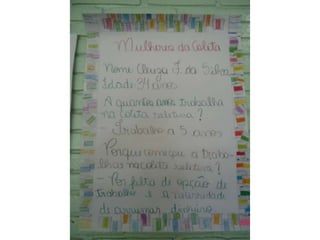 Mulheres da Coleta
Nome Cleuza F. da Silva
Idade 34 anos
A quantos anos trabalha
na coleta seletiva?
- Trabalho a 5 anos
Porque começou a traba-
lhar na coleta seletiva?
- Por falta de opção de
trabalho e a necessidade
de arrumar dinheiro